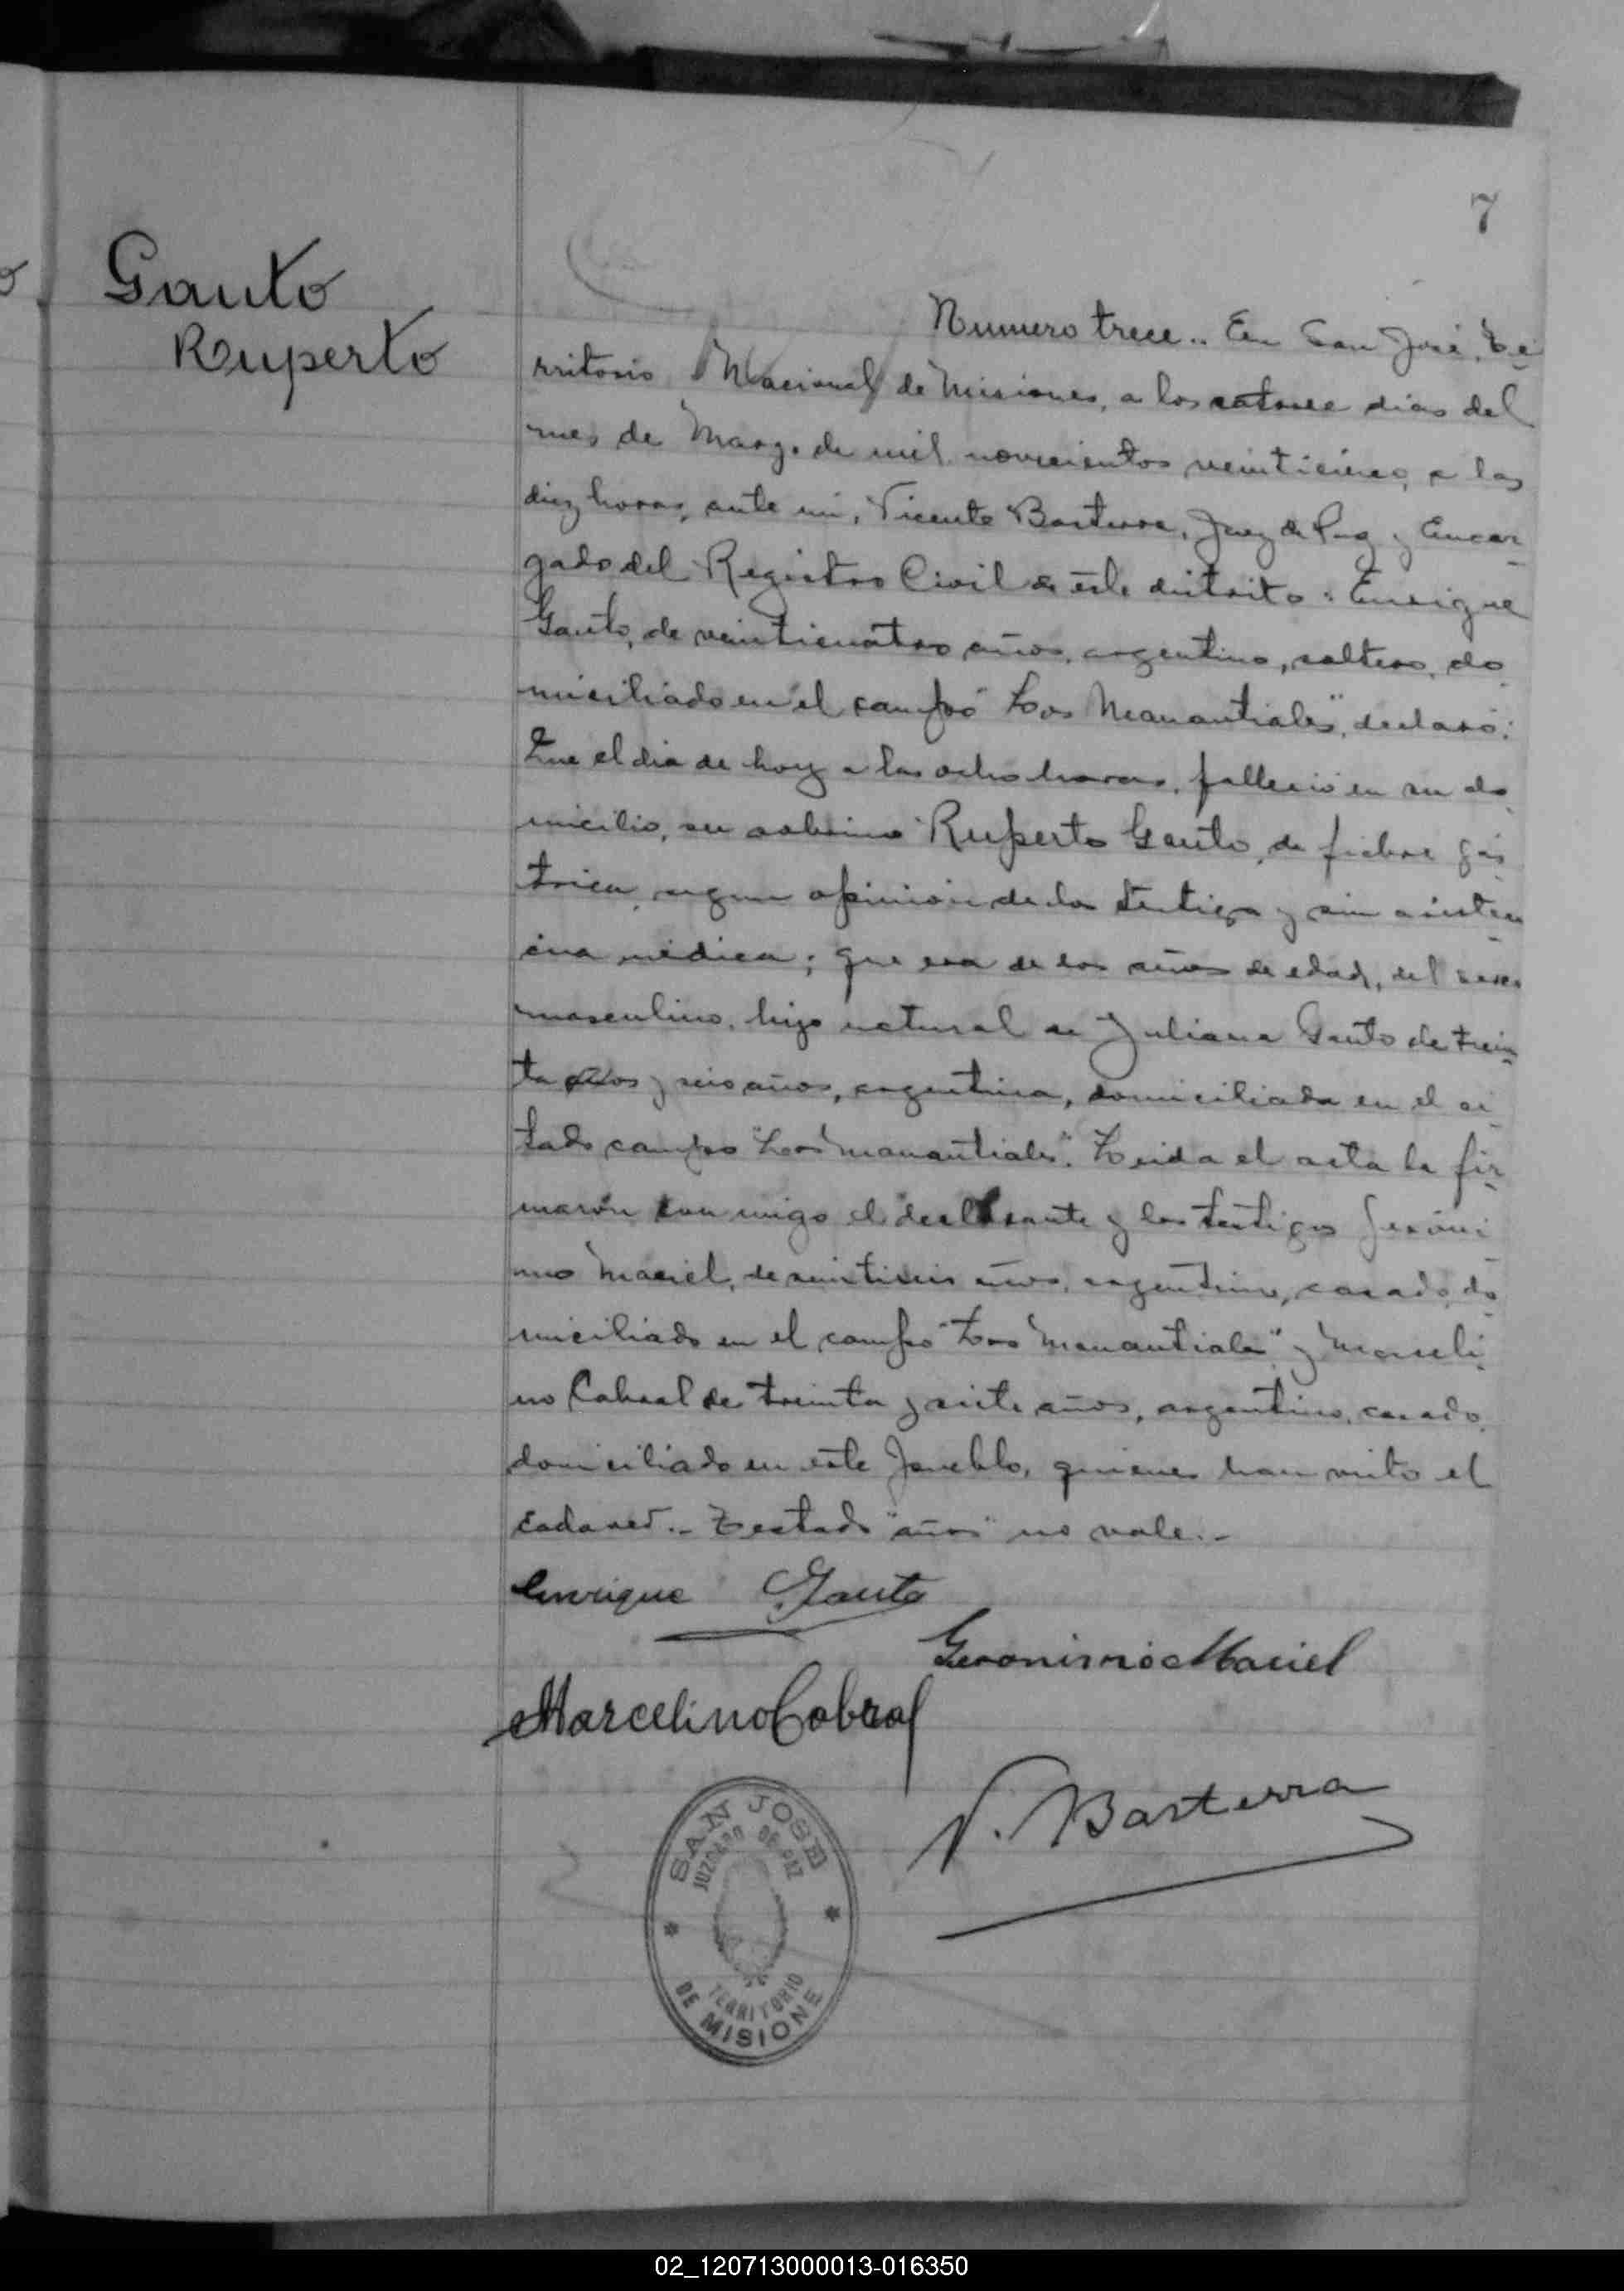 7
Gauto
Ruperto
Numero trece.. En San José, Te-
rritorio Nacional de Misiones, a los catorce dias del
mes de Marzo de mil novecientos veinticinco, a las
diez horas, ante mi, Vicente Basterra, Juez de Paz y Encar-
gado del Registro Civil de este distrito: Enrique
Gauto, de veinticuatro años, argentino, soltero, do-
miciliado en el campo "Los Manantiales", declaró:
Que el dia de hoy a las ocho horas, falleció en su do-
micilio, su sobrino Ruperto Gauto, de fiebre gás-
trica, segun opinión de los testigos y sin asisten-
cia médica; que era de dos años de edad, del sexo
masculino, hijo natural de Juliana Gauto de trein-
ta años y seis años, argentina, domiciliada en el ci-
tado campo "Los Manantiales". Leida el acta la fir-
maron con migo el declarante y los testigos Jeróni-
mo Maciel, de veintiseis años, argentino, casado, do-
miciliado en el campo "Los Manantiales" y Marceli-
no Cabral de treinta y siete años, argentino, casado,
domiciliado en este pueblo, quienes han visto el
cadaver.- Testado "años" no vale.-
Enrique Gauto
Geronimo Maciel
Marcelino Cabral
V. Basterra
SAN JOSE
JUZGADO DE PAZ
TERRITORIO
DE MISIONE
02_120713000013-016350